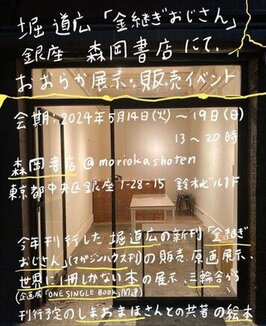 堀 道広「金継ぎおじさん」
銀座 森岡書店 にて、
おおらか展示・販売イベント
会期:2024年5月14日(火)〜19日(日)
13〜20時
森岡書店 @moriokashoten
東京都中央区銀座1-28-15 鈴木ビル1F
今年刊行した 堀道広の新刊「金継ぎ
おじさん」(マガジンハウス刊)の販売、原画展示、
世界に1冊しかない本の展示、三輪舎から
(企画展「ONE SINGLE BOOK」関連)
刊行予定のしまおまほさんとの共著の絵本